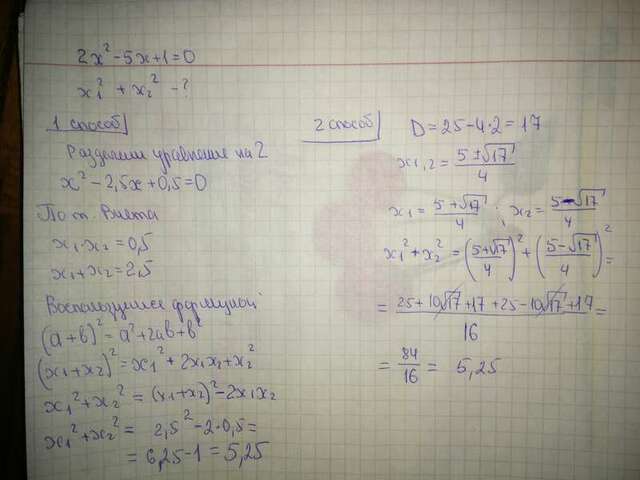 2x² - 5x + 1 = 0
x₁² + x₂² - ?
1 способ
Разделим уравнение на 2
x² - 2,5x + 0,5 = 0
По т. Виета
x₁·x₂ = 0,5
x₁ + x₂ = 2,5
Воспользуемся формулой
(a+b)² = a² + 2ab + b²
(x₁+x₂)² = x₁² + 2x₁x₂ + x₂²
x₁² + x₂² = (x₁+x₂)² - 2x₁x₂
x₁² + x₂² = 2,5² - 2·0,5 =
= 6,25 - 1 = 5,25
2 способ
D = 25 - 4·2 = 17
x₁,₂ = (5 ± √17)/4
x₁ = (5 + √17)/4 ; x₂ = (5 - √17)/4
x₁² + x₂² = ((5+√17)/4)² + ((5-√17)/4)² =
= (25 + 10√17 + 17 + 25 - 10√17 + 17)/16 =
= 84/16 = 5,25